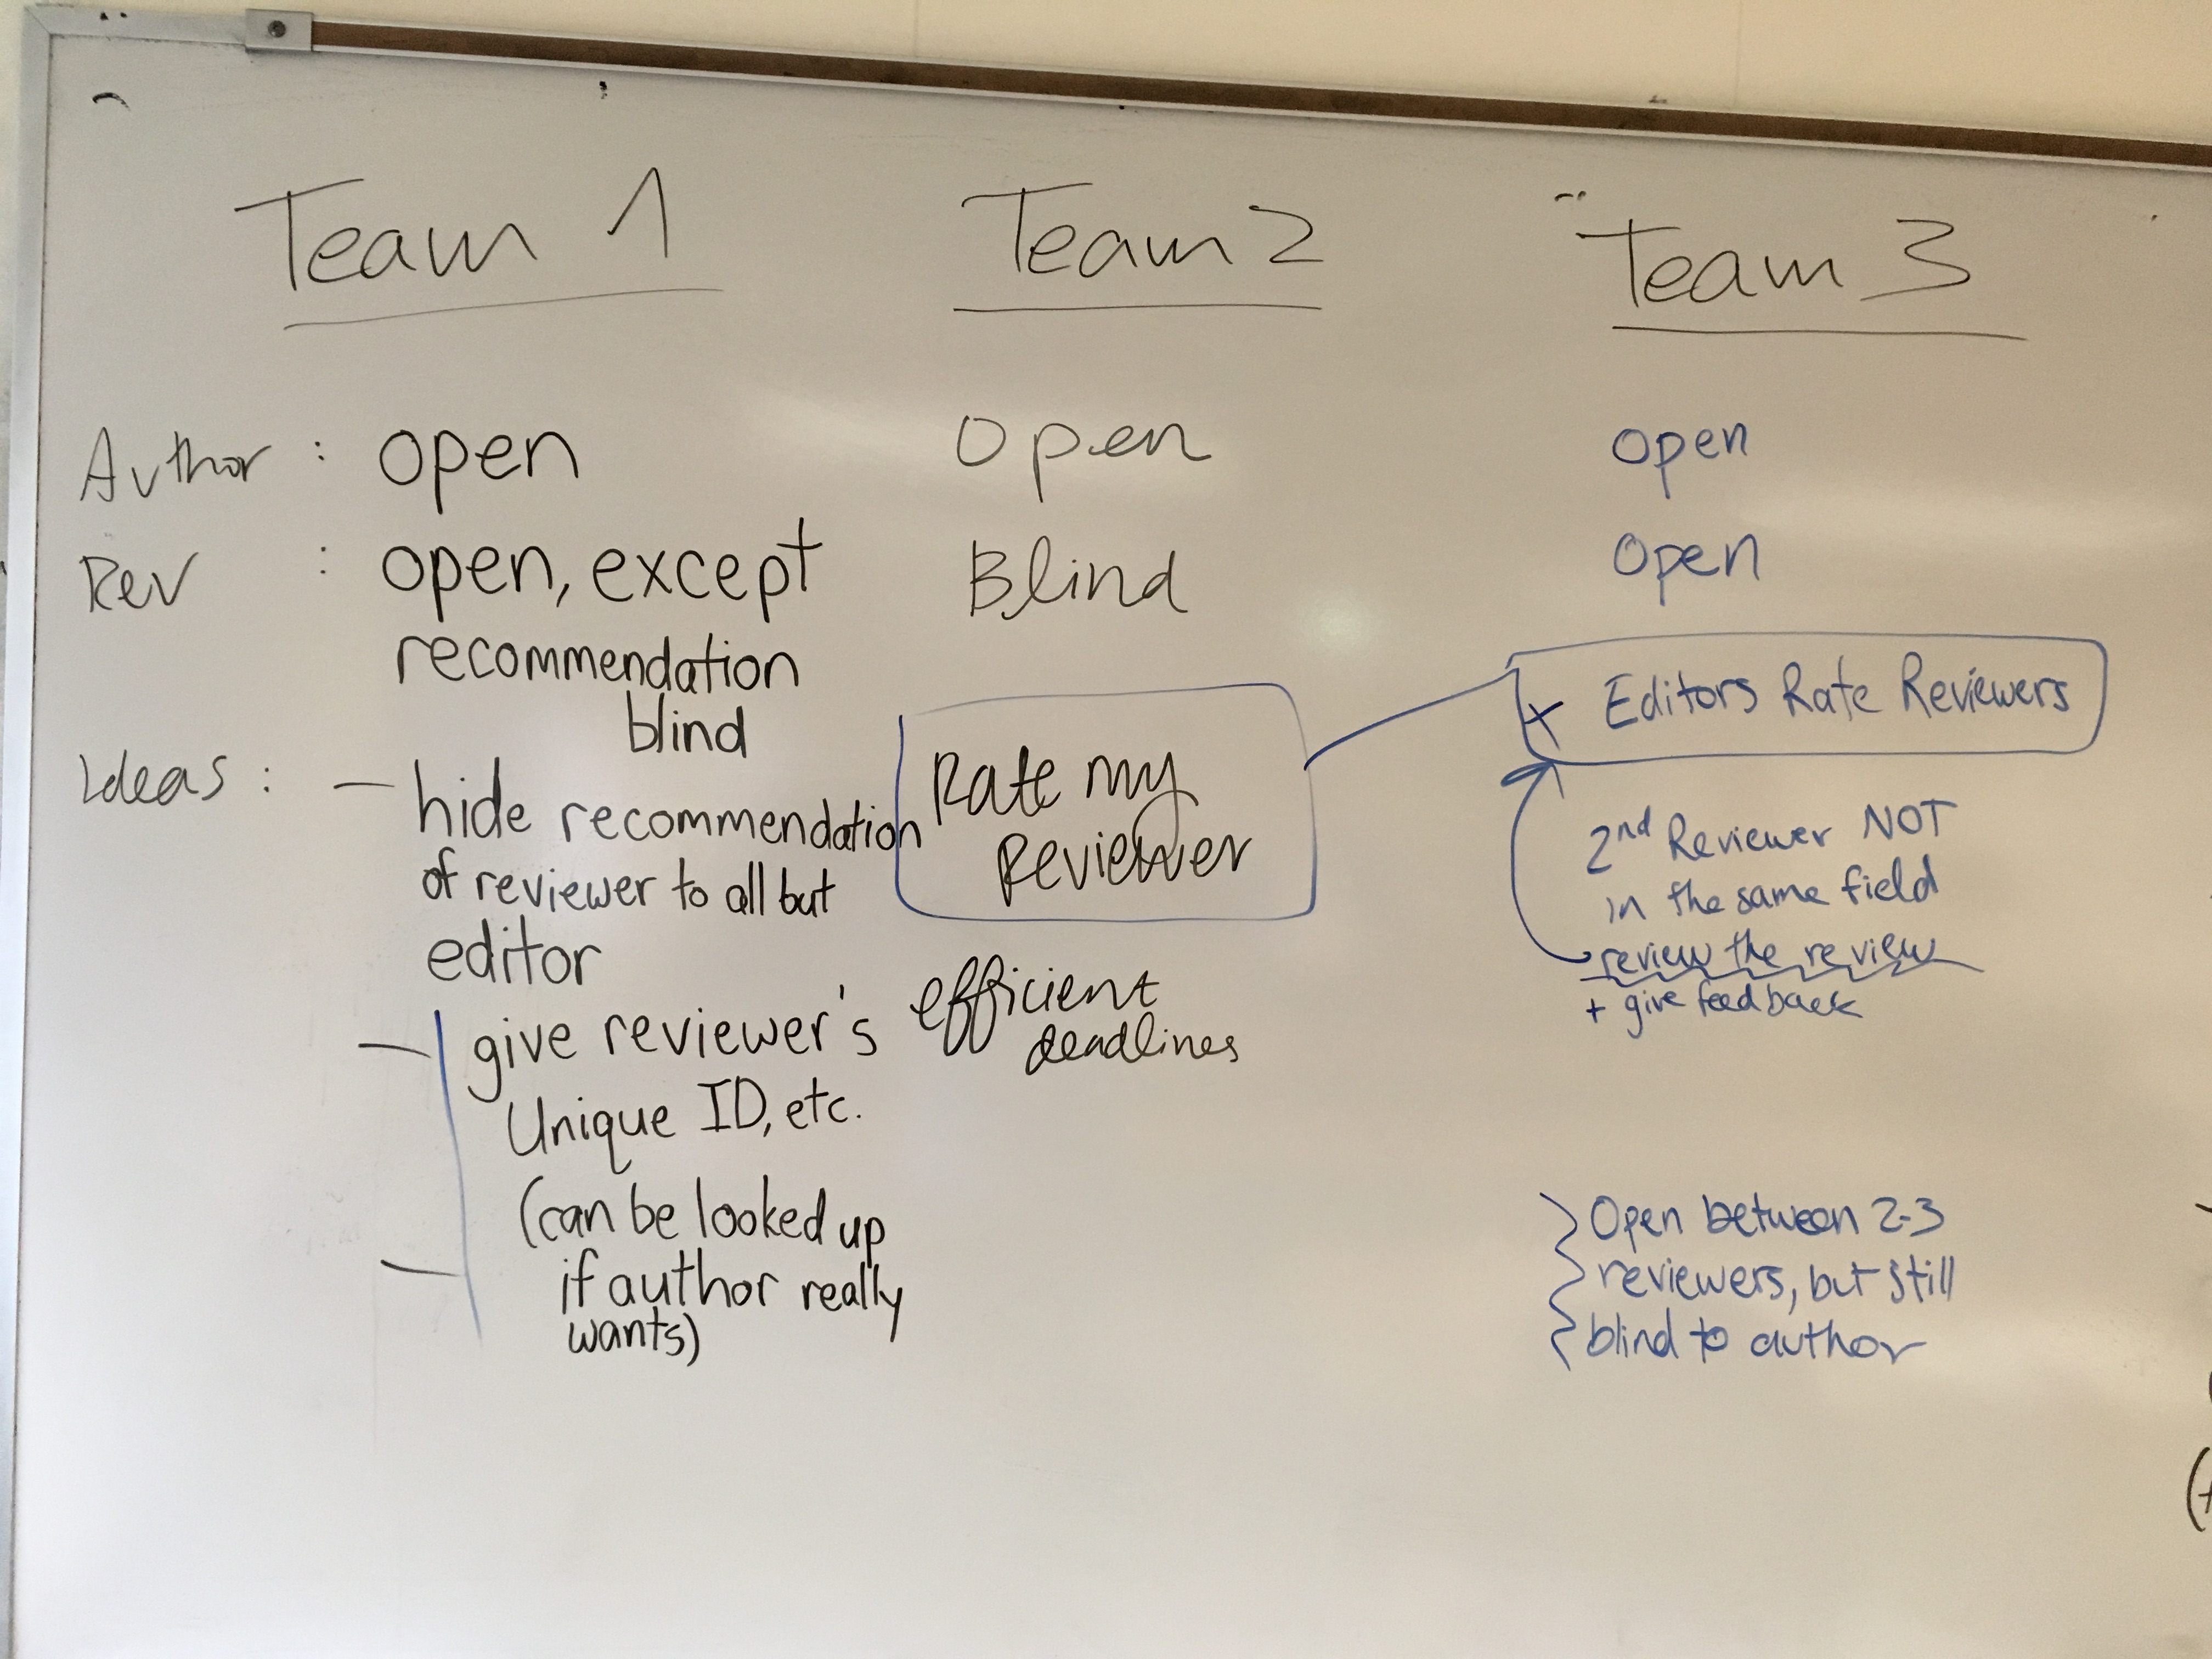 Team 1
Team 2
Team 3
Author : open
Open
open
Rev : open, except
Blind
open
recommendation
blind
Ideas : - hide recommendation
of reviewer to all but
editor
- give reviewer's
Unique ID, etc.
- (can be looked up
if author really
wants)
Rate my
Reviewer
efficient
deadlines
+ Editors Rate Reviewers
2nd Reviewer NOT
in the same field
review the review
+ give feedback
Open between 2-3
reviewers, but still
blind to author